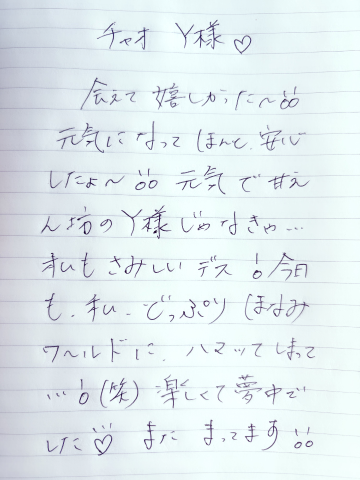 チャオ Y様♡
会えて 嬉しかった〜!!
元気になって ほんと、安心
したよ〜!! 元気で甘え
ん坊のY様じゃなきゃ…
私もさみしいデス! 今日
も、私、どっぷり ほなみ
ワールドに、ハマッてしまって
…!(笑) 楽しくて夢中で
した♡ また まってます!!